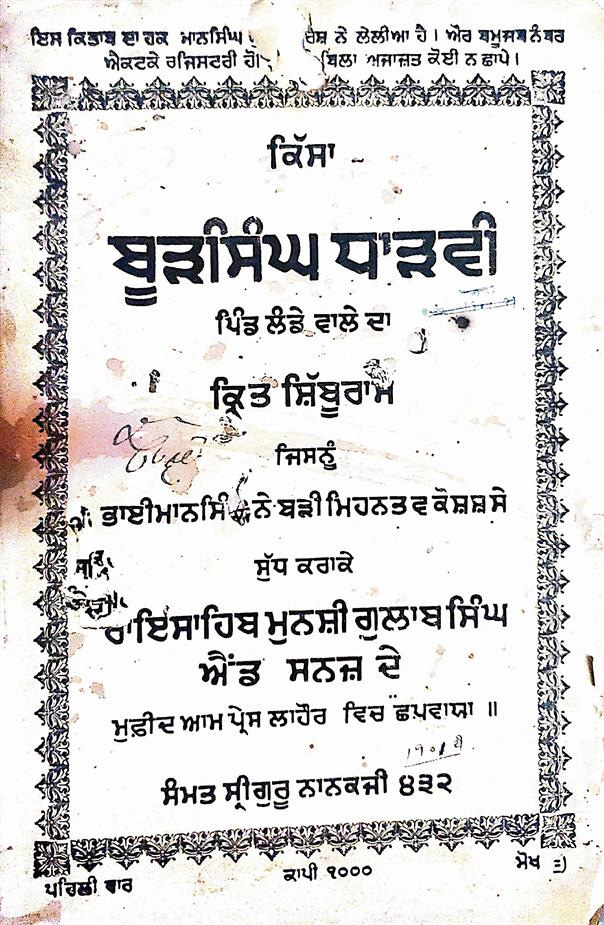 ਇਸ ਕਿਤਾਬ ਦਾ ਹਕ ਮਾਨਸਿੰਘ ਨੇ ਲੇਲੀਆ ਹੈ। ਔਰ ਬਮੂਜਬ ਨੰਬਰ
ਐਕਟਕੇ ਰਜਿਸਟਰੀ ਬਿਲਾ ਅਜਾਜ਼ਤ ਕੋਈ ਨ ਛਾਪੇ।
ਕਿੱਸਾ
ਬੂੜਸਿੰਘ ਧਾੜਵੀ
ਪਿੰਡ ਲੰਡੇ ਵਾਲੇ ਦਾ
ਕ੍ਰਿਤ ਸ਼ਿੱਬੂਰਾਮ
ਜਿਸਨੂੰ
ਭਾਈਮਾਨਸਿੰਘ ਨੇ ਬੜੀ ਮਿਹਨਤ ਵ ਕੋਸ਼ਸ਼ ਸੇ
ਸੁੱਧ ਕਰਾਕੇ
ਰਾਇਸਾਹਿਬ ਮੁਨਸ਼ੀ ਗੁਲਾਬ ਸਿੰਘ
ਐਂਡ ਸਨਜ਼ ਦੇ
ਮੁਫ਼ੀਦ ਆਮ ਪ੍ਰੇਸ ਲਾਹੌਰ ਵਿਚ ਛਪਵਾਯਾ ॥
੧੯੦੧ ਈ
ਸੰਮਤ ਸ੍ਰੀਗੁਰੂ ਨਾਨਕਜੀ ੪੩੨
ਪਹਿਲੀ ਵਾਰ ਕਾਪੀ ੧੦੦੦ ਮੋਖ